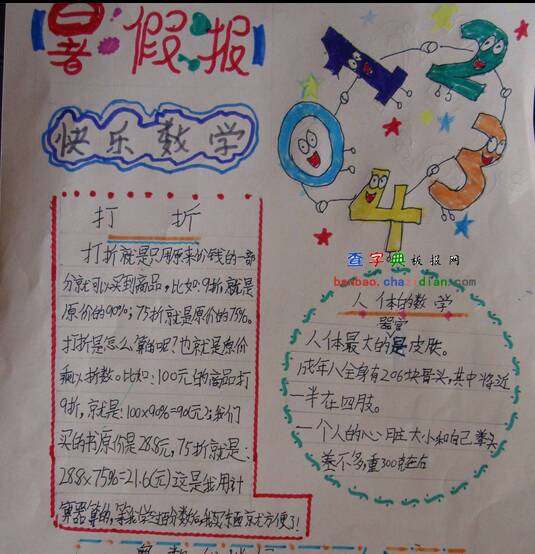 暑假报
快乐数学
0 1 2 3 4
打 折
打折就是只用原来价钱的一部
分就可以买到商品,比如:9折就是
原价的90%;75折就是原价的75%。
打折是怎么算的呢?也就是原价
乘以折数。比如:100元的商品打
9折,就是:100×90%=90(元);我们
买的书原价是28.8元,75折就是:
28.8×75%=21.6(元)这是我用计
算器算的,等我学过
查字典板报网
banbao.chazidian.com
人体的数学
器官
人体最大的是皮肤。
成年人全身有206块骨头,其中将近
一半在四肢。
一个人的心脏大小和自己拳头
差不多重300克左右